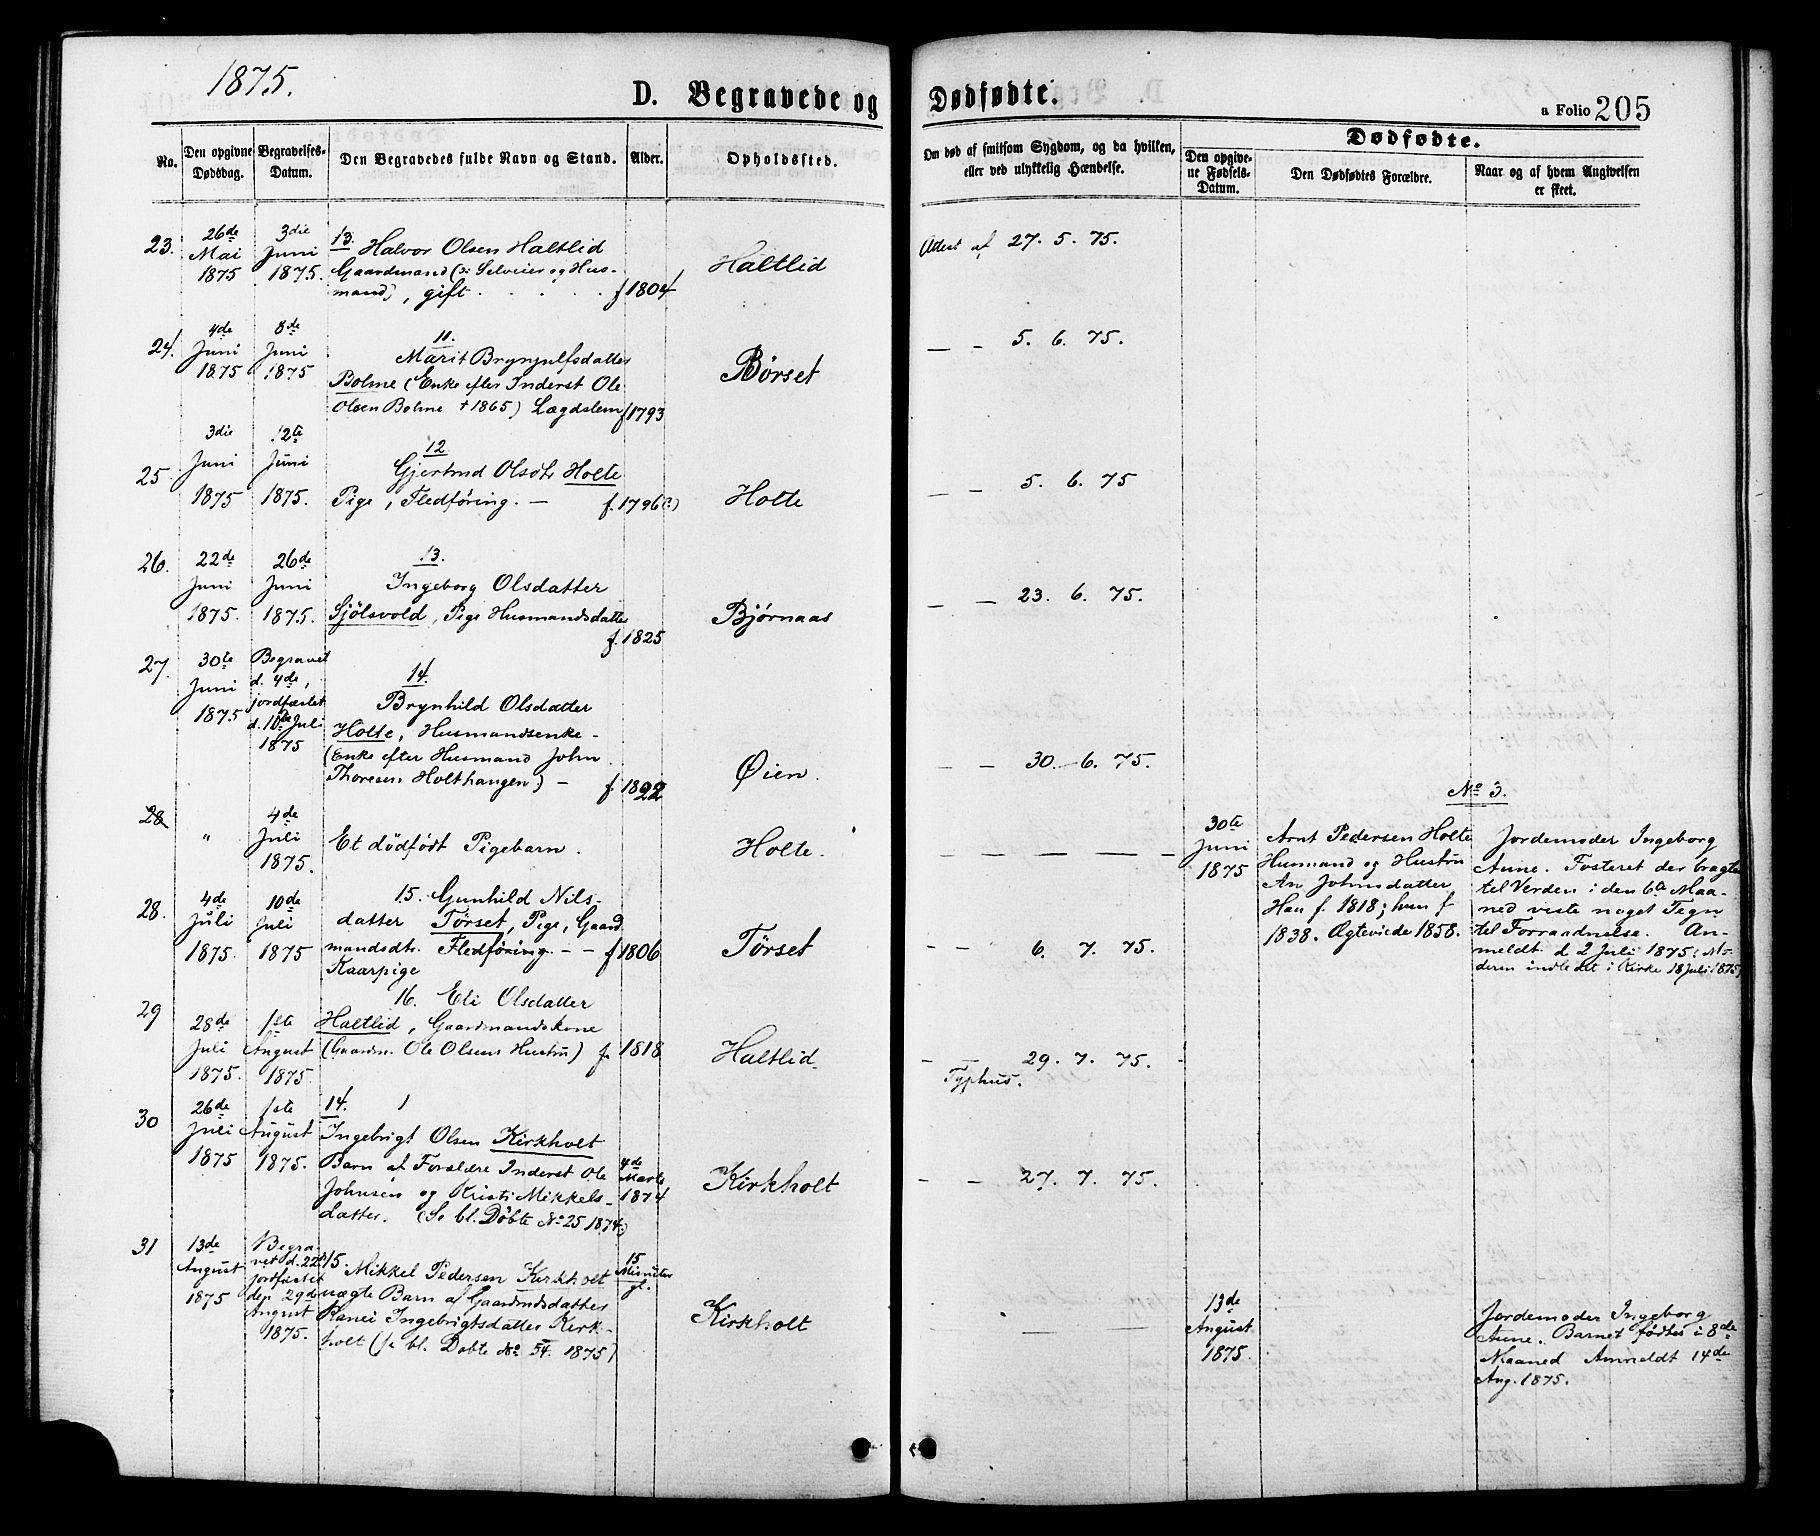 1875.
D. Begravede og Dødfødte.
a Folio 205
No.
Den opgivne Dødsdag.
Begravelses-Datum.
Den Begravedes fulde Navn og Stand.
Alder.
Opholdssted.
Om død af smitsom Sygdom, og da hvilken,
eller ved ulykkelig Hændelse.
Dødfødte.
Den opgivne Fødsels-Datum.
Den Dødfødtes Forældre.
Naar og af hvem Angivelsen er skeet.
23.
26de Mai 1875
3die Juni 1875.
13. Halvor Olsen Haltlid
Gaardmand (ɔ: Selveier og Hus-
mand), gift . . . . . f 1804
Haltlid
Attest af 27. 5. 75.
24.
4de Juni 1875
8de Juni 1875
11.
Marit Brynjulfsdatter
Bolme (Enke efter Inderst Ole
Olsen Bolme † 1865) Lægdslem f 1793
Børset
— — 5. 6. 75.
25.
3die Juni 1875
12te Juni 1875.
12
Gjertrud Olsdtr Holte
Pige, Fledføring. — f. 1796(?)
Holte
— — 5. 6. 75
26.
22de Juni 1875.
26de Juni 1875.
13.
Ingeborg Olsdatter
Sjölsvold, Pige Husmandsdatter
f. 1825
Bjørnaas
— — 23. 6. 75.
27.
30te Juni 1875
Begravet d. 4de, jordfæstet d. 11te Juli 1875
14.
Brynhild Olsdatter
Holte, Husmandsenke -
(Enke efter Husmand John
Thoresen Holthaugen) — f. 1822
Øien.
— — 30. 6. 75.
28
"
4de Juli 1875.
Et dödfödt Pigebarn.
Holte.
— — — — —
No 3.
30te Juni 1875
Arnt Pedersen Holte
Husmand og Hustru
An Johnsdatter
Han f. 1818; hun f
1838. Ægteviede 1858.
Jordemoder Ingeborg
Aune. Fosteret der bragtes
til Verden i den 6te Maa-
ned viste noget Tegn
til Forraadnelse. An-
meldt d 2 Juli 1875; Mo-
deren indledet i Kirke 18 Juli 1875)
28.
4de Juli 1875.
10de Juli 1875
15. Gunhild Nils-
datter Tørset, Pige, Gaard
mandsdt. Fledföring. — — f 1806
Kaarpige
Tørset
— — 6. 7. 75.
29
28de Juli 1875.
1ste August 1875.
16. Eli Olsdatter
Haltlid, Gaardmandskone
(Gaardm. Ole Olsens Hustru) f. 1818
Haltlid.
— — 29. 7. 75.
Typhus.
30
26de Juli 1875
1ste August 1875.
14.
Ingebrigt Olsen Kirkholt
Barn af Forældre Inderst Ole
Johnsen og Kristi Mikkels-
datter. (Se bl. Döbte No 25 1874.)
4de Marts 1874
Kirkholt
— — 27. 7. 75.
31
13de August 1875
Begra-
vet d. 22
jortfæstet
den 29de
August
1875.
15. Mikkel Pedersen Kirkholt
uægte Barn af Gaardmdsdatter
Ranei Ingebrigtsdatter Kirk-
holt (se bl. Döbte No 54. 1875)
15 Minuter gl.
Kirkholt
— —
13de August 1875.
Jordemoder Ingeborg
Aune. Barnet födtes i 8de
Maaned Anmeldt 14de
Aug. 1875.